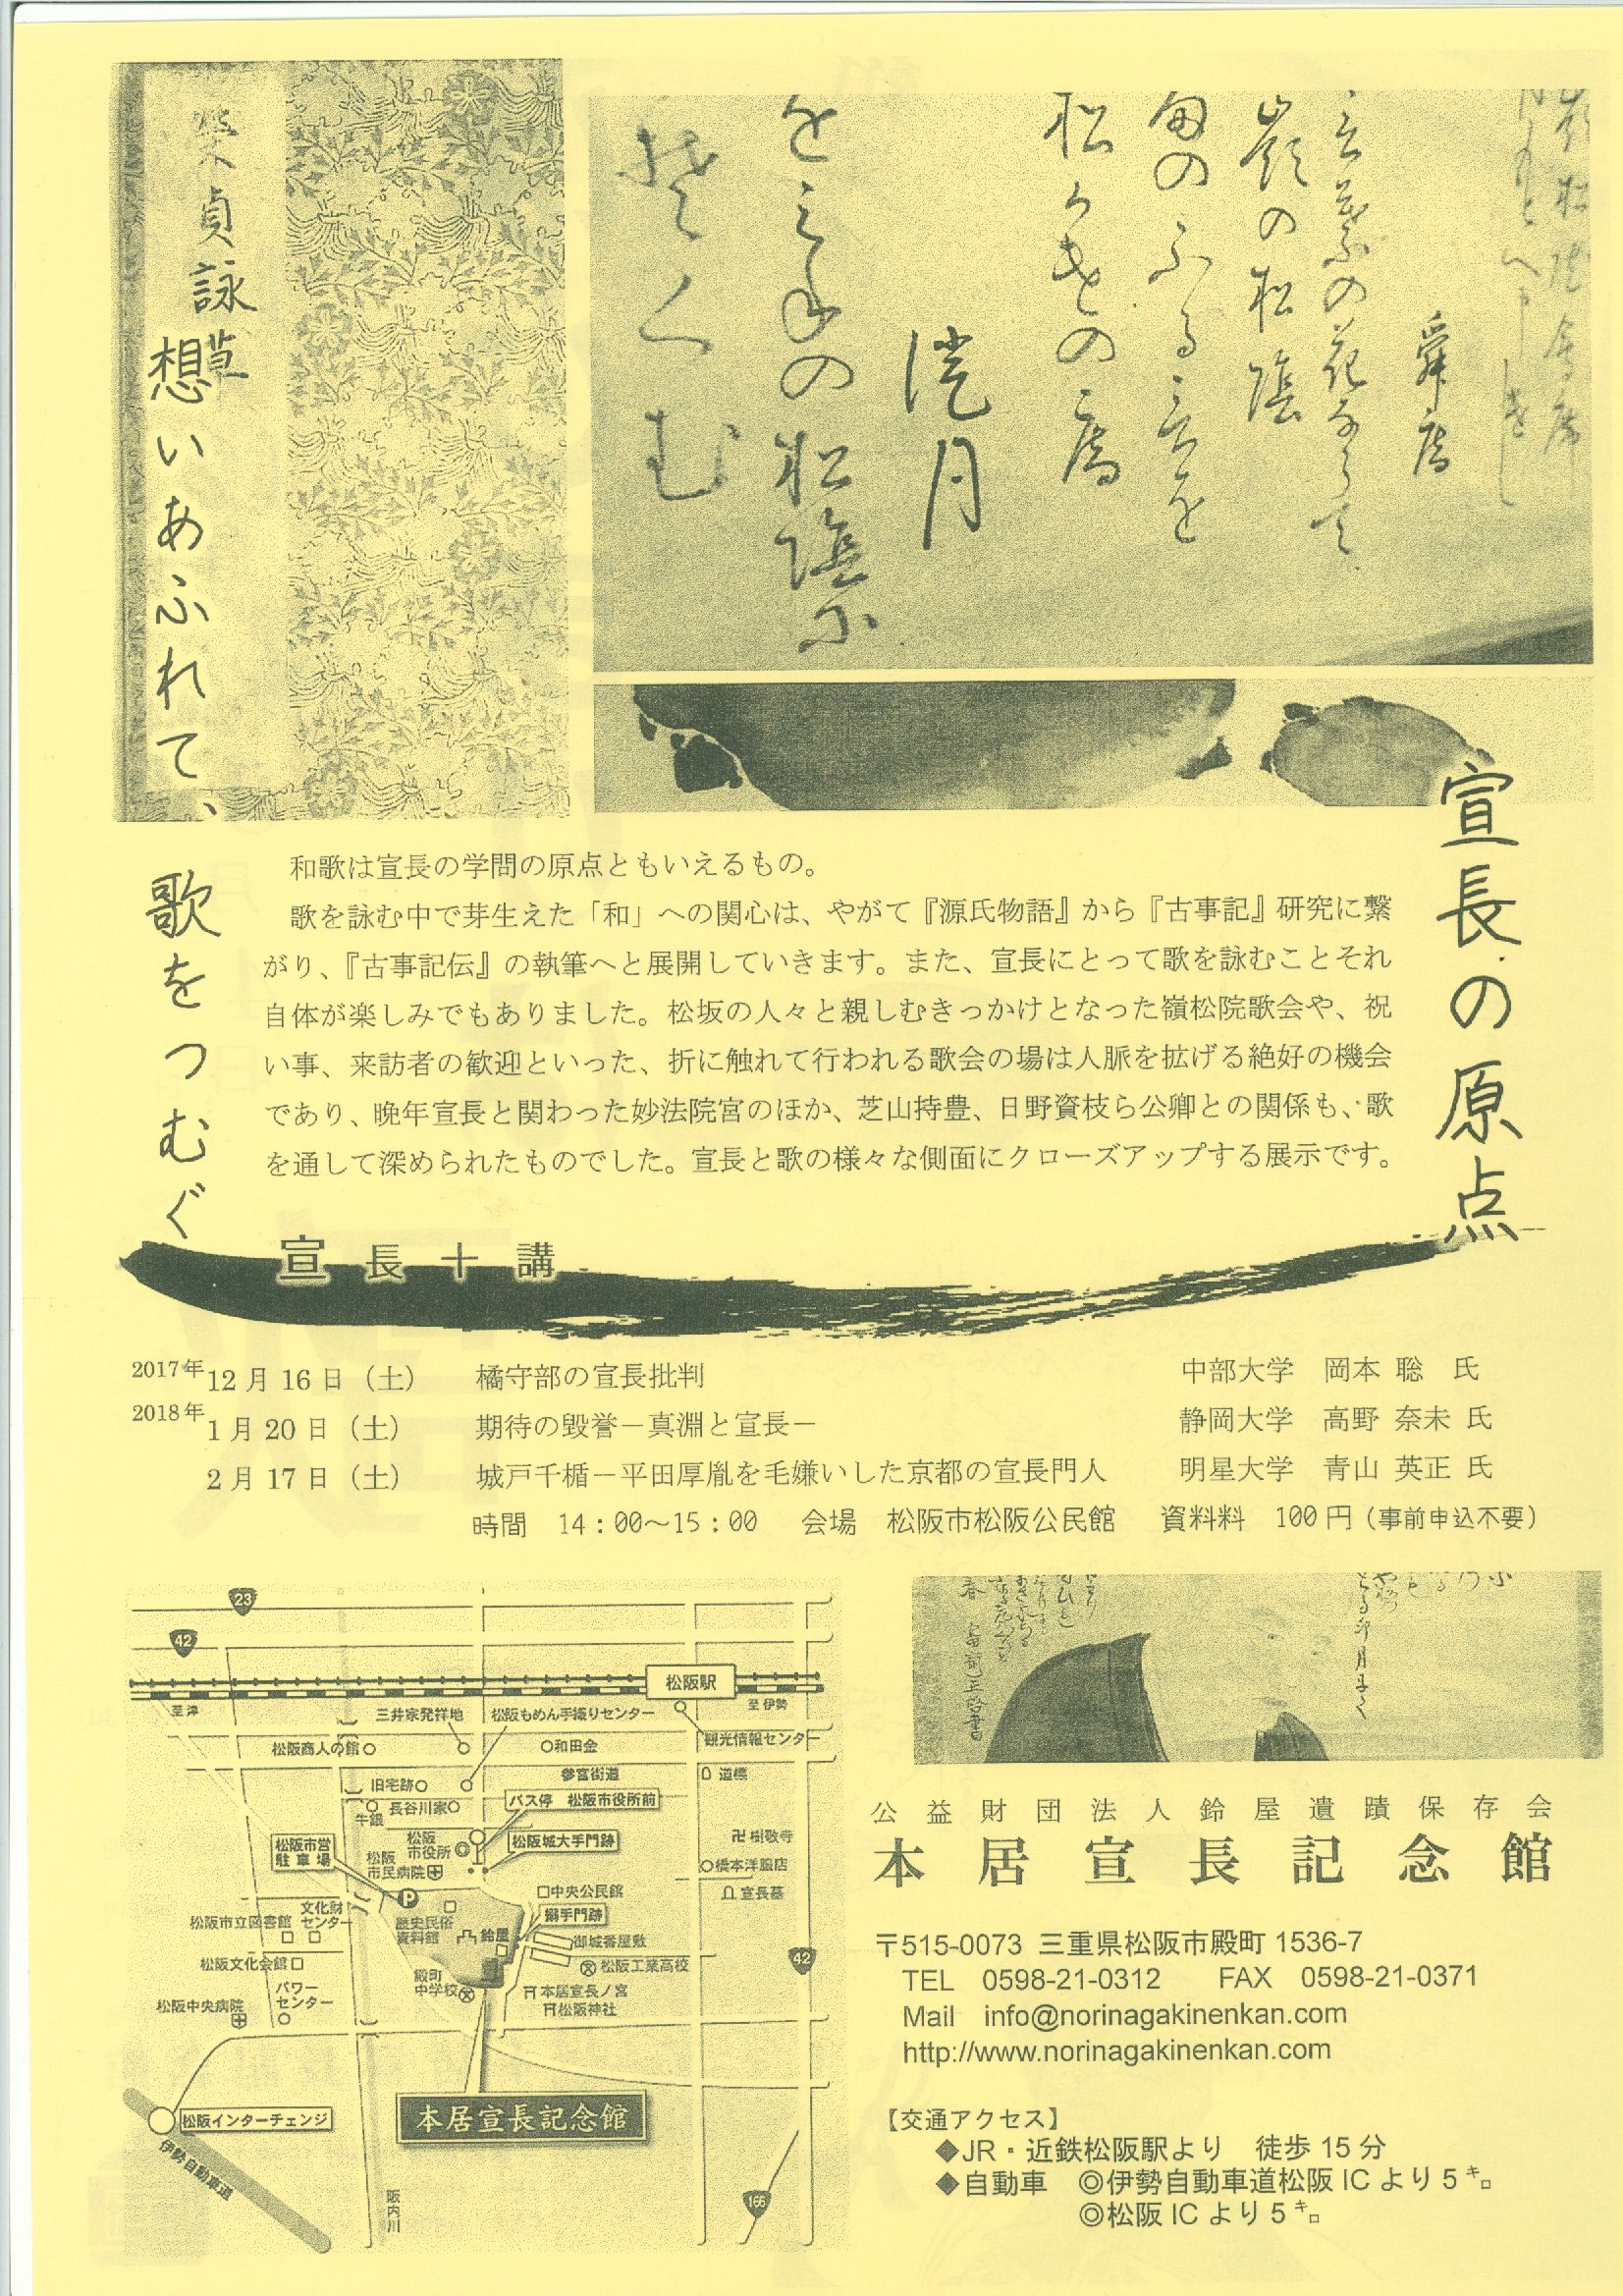 貞詠草
想いあふれて、歌をつむぐ
舜庵
澄月
宣長の原点
和歌は宣長の学問の原点ともいえるもの。
歌を詠む中で芽生えた「和」への関心は、やがて『源氏物語』から『古事記』研究に繋
がり、『古事記伝』の執筆へと展開していきます。また、宣長にとって歌を詠むことそれ
自体が楽しみでもありました。松坂の人々と親しむきっかけとなった嶺松院歌会や、祝
い事、来訪者の歓迎といった、折に触れて行われる歌会の場は人脈を拡げる絶好の機会
であり、晩年宣長と関わった妙法院宮のほか、芝山持豊、日野資枝ら公卿との関係も、歌
を通して深められたものでした。宣長と歌の様々な側面にクローズアップする展示です。
宣長十講
2017年 12月16日（土） 橘守部の宣長批判 中部大学 岡本 聡 氏
2018年 1月20日（土） 期待の毀誉－真淵と宣長－ 静岡大学 高野 奈未 氏
2月17日（土） 城戸千楯－平田厚胤を毛嫌いした京都の宣長門人 明星大学 青山 英正 氏
時間 14：00～15：00 会場 松阪市松阪公民館 資料料 100円（事前申込不要）
23
42
松阪駅
至津
至伊勢
三井家発祥地
松阪もめん手織りセンター
松阪商人の館
和田金
観光情報センター
旧宅跡
参宮街道
道標
牛銀
長谷川家
バス停 松阪市役所前
松阪市役所
松阪城大手門跡
樹敬寺
松阪市営駐車場
松阪市民病院
橋本洋服店
P
中央公民館
宣長墓
文化財センター
松阪市立図書館
歴史民俗資料館
鈴屋
搦手門跡
御城番屋敷
松阪文化会館
松阪工業高校
42
殿町中学校
パワーセンター
松阪中央病院
本居宣長ノ宮
松阪神社
松阪インターチェンジ
本居宣長記念館
伊勢自動車道
阪内川
166
公益財団法人鈴屋遺蹟保存会
本居宣長記念館
〒515-0073 三重県松阪市殿町1536-7
TEL 0598-21-0312 FAX 0598-21-0371
Mail info@norinagakinenkan.com
http://www.norinagakinenkan.com
【交通アクセス】
◆JR・近鉄松阪駅より 徒歩15分
◆自動車 ◎伊勢自動車道松阪ICより5㌔
◎松阪ICより5㌔